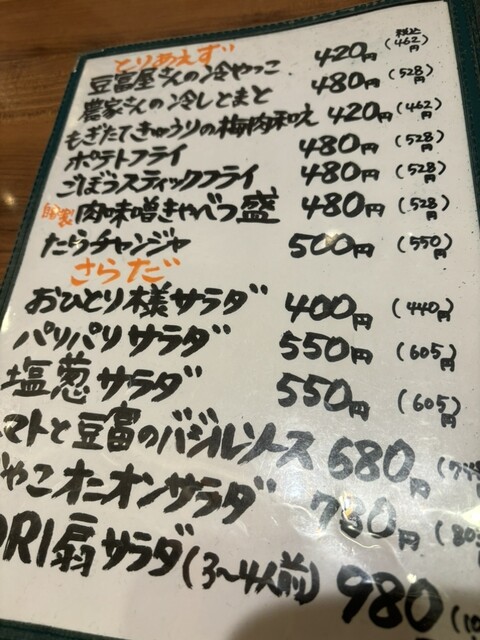 とりあえず 税込
豆富屋さんの冷やっこ 420円 (462円)
農家さんの冷しとまと 480円 (528円)
もぎたてきゅうりの梅肉和え 420円 (462円)
ポテトフライ 480円 (528円)
ごぼうスティックフライ 480円 (528円)
自家製 肉味噌きゃべつ盛 480円 (528円)
たらチャンジャ 500円 (550円)
さらだ
おひとり様サラダ 400円 (440円)
パリパリサラダ 550円 (605円)
塩葱サラダ 550円 (605円)
マトと豆富のバジルソース 680円
やこオニオンサラダ 円
ORI扇サラダ(3〜4人前) 980円